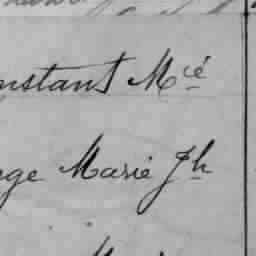 nstant Mcé
ge Marie Jh